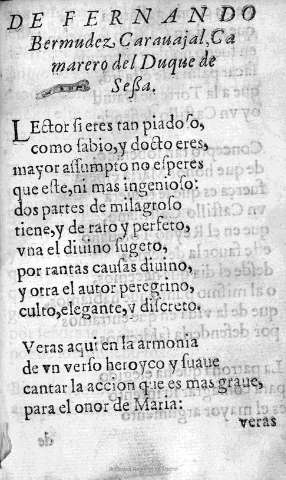 DE FERNANDO
Bermudez Carauajal, Ca
marero del Duque de
Sessa.
LEctor si eres tan piadoso,
como sabio, y docto eres,
mayor assumpto no esperes
que este, ni mas ingenioso:
dos partes de milagroso
tiene, y de raro y perfeto,
vna el diuino sugeto,
por rantas causas diuino,
y otra el autor peregrino,
culto, elegante, y discreto.
Veras aqui en la armonia
de vn verso heroyco y suaue
cantar la accion que es mas graue,
para el onor de Maria:
veras